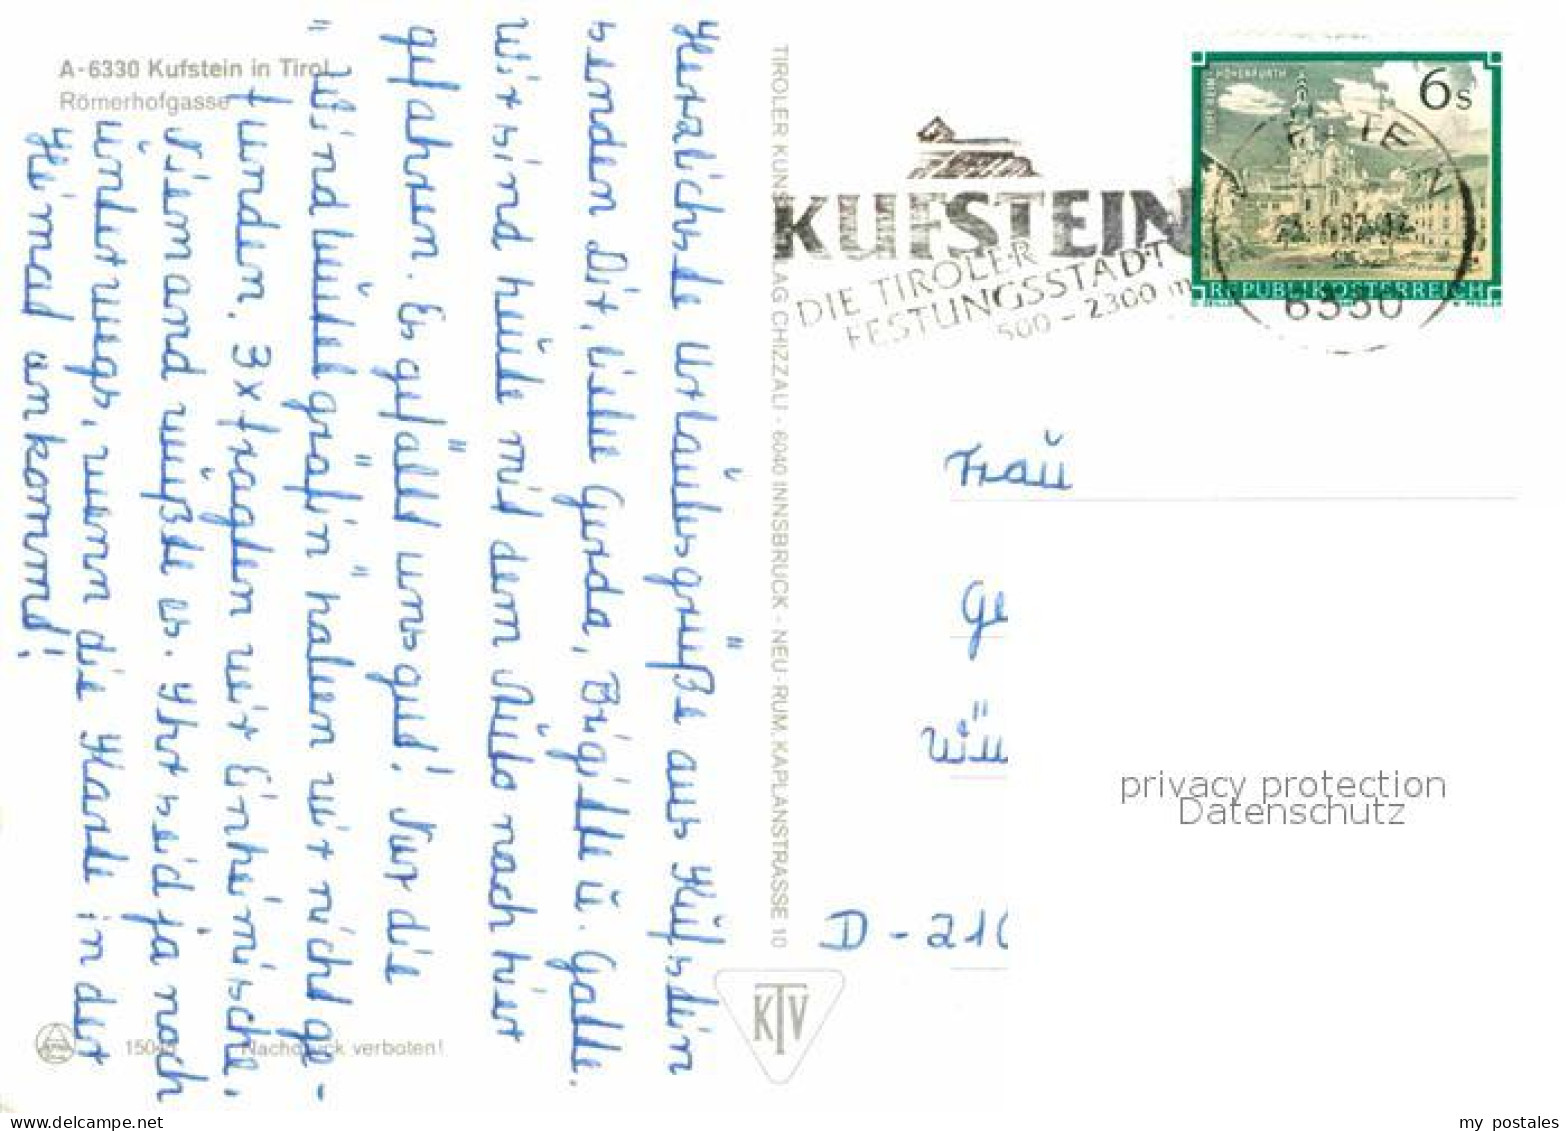 A-6330 Kufstein in Tirol
Römerhofgasse
Herzlichste Urlaubsgrüße aus Kufstein
senden Dir, liebe Gerda, Brigitte u. Gatte.
Wir sind heute mit dem Auto nach hier
gefahren. Es gefällt uns gut! Nur die
"Windbeutelgräfin" haben wir nicht ge-
funden. 3x fragten wir Einheimische,
Niemand wußte es. Ihr seid ja noch
unterwegs, wenn die Karte in der
Heimat ankommt!
15045 Nachdruck verboten!
TIROLER KUNSTVERLAG CHIZZALI - 6040 INNSBRUCK - NEU-RUM, KAPLANSTRASSE 10
KTV
KUFSTEIN
DIE TIROLER
FESTUNGSSTADT
500 - 2300 m
6330
STIFT HOHENFURTH
6 S
REPUBLIK ÖSTERREICH
Frau
Ge
D-210
privacy protection
Datenschutz
my postales